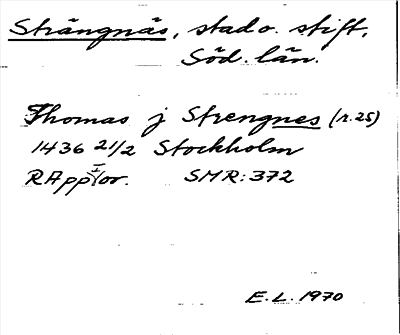 Strängnäs, stad o. stift,
Söd. län.
Thomas j Strengnes (r. 25)
1436 21/2 Stockholm
RApp For. SMR: 372
E. L. 1970